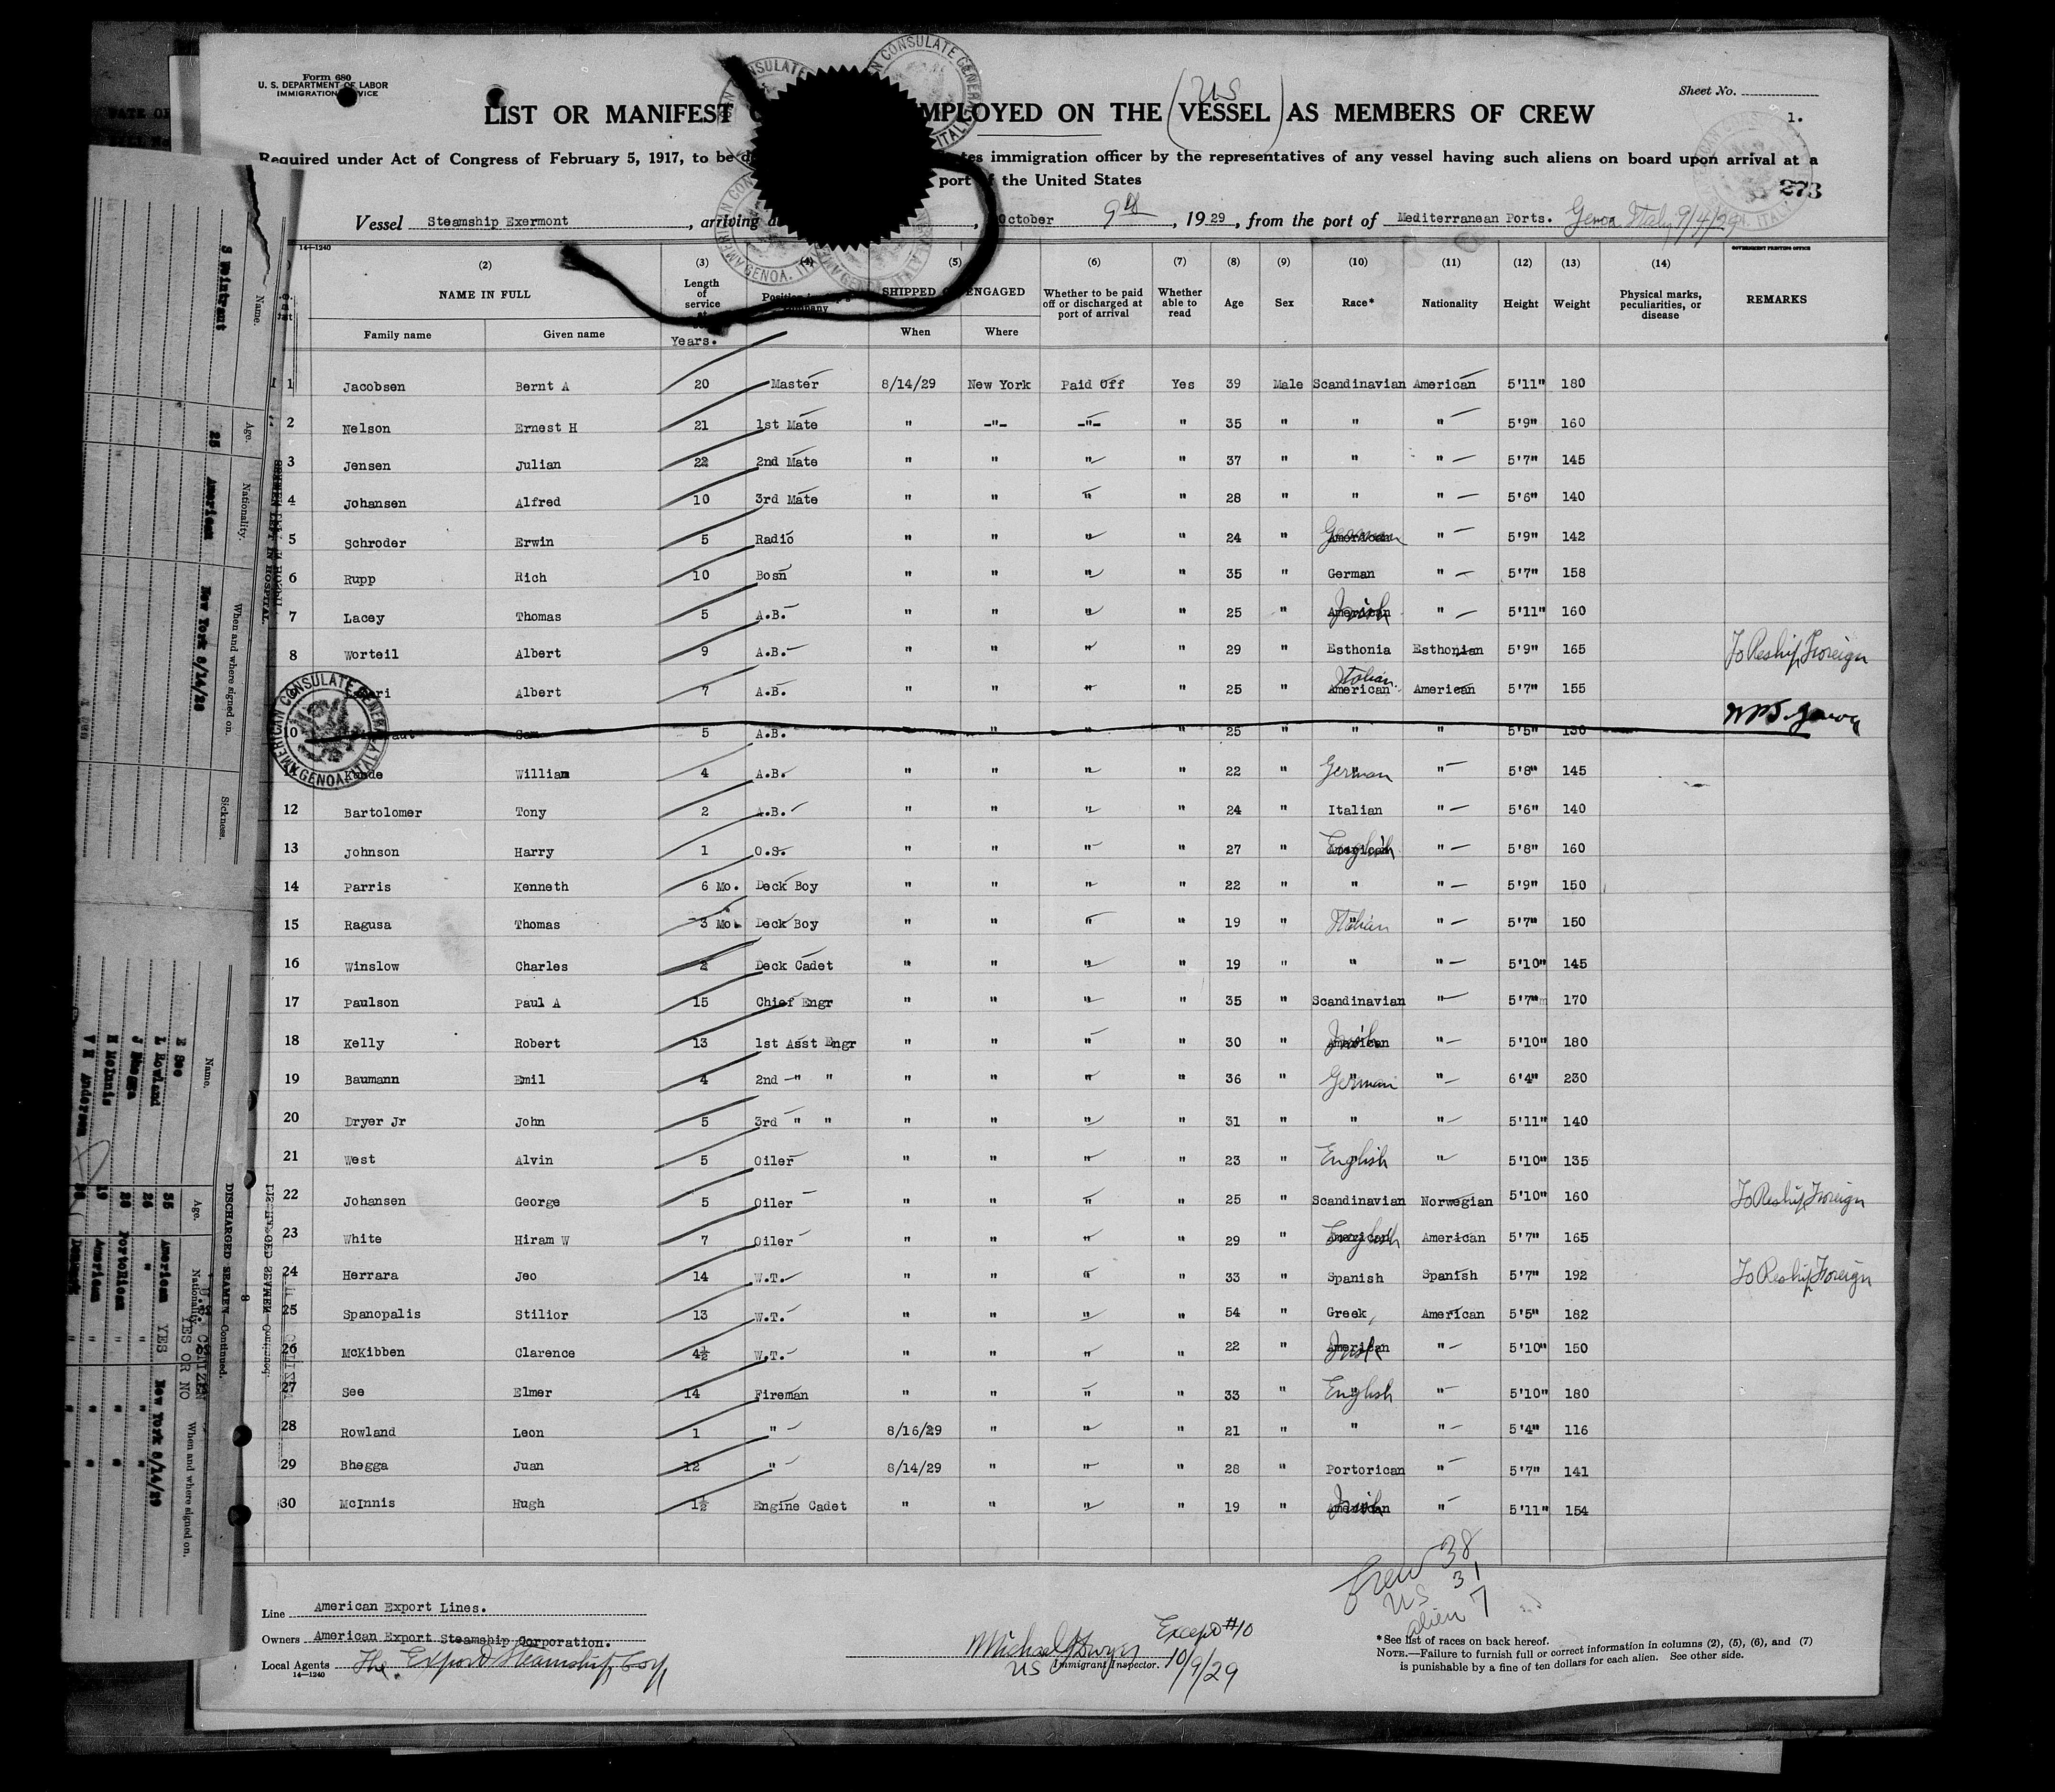 Form 680
U. S. DEPARTMENT OF LABOR
IMMIGRATION
Sheet No.
1.
LIST OR MANIFEST EMPLOYED ON THE (VESSEL) AS MEMBERS OF CREW
US
Required under Act of Congress of February 5, 1917, to be immigration officer by the representatives of any vessel having such aliens on board upon arrival at a
port of the United States
273
Vessel Steamship Exermont, arriving October 9th, 1929, from the port of Mediterranean Ports. Genoa Italy 9/4/29
14-1240
GOVERNMENT PRINTING OFFICE
(2) (3) (4) (5) (6) (7) (8) (9) (10) (11) (12) (13) (14)
NAME IN FULL Length of service Years. SHIPPED OR ENGAGED Whether to be paid off or discharged at port of arrival Whether able to read Age Sex Race* Nationality Height Weight Physical marks, peculiarities, or disease REMARKS
Family name Given name When Where
1 Jacobsen Bernt A 20 Master 8/14/29 New York Paid Off Yes 39 Male Scandinavian American 5'11" 180
2 Nelson Ernest H 21 1st Mate " -"- -"- " 35 " " " 5'9" 160
3 Jensen Julian 22 2nd Mate " " " " 37 " " " 5'7" 145
4 Johansen Alfred 10 3rd Mate " " " " 28 " " " 5'6" 140
5 Schroder Erwin 5 Radio " " " " 24 " American German " 5'9" 142
6 Rupp Rich 10 Bosn " " " " 35 " German " 5'7" 158
7 Lacey Thomas 5 A.B. " " " " 25 " American Irish " 5'11" 160
8 Worteil Albert 9 A.B. " " " " 29 " Esthonia Esthonian 5'9" 165 To Reship Foreign
Albert 7 A.B. " " " " 25 " American Italian American 5'7" 155
10 Sam 5 A.B. " " " 25 " " " 5'5" 130
William 4 A.B. " " " " 22 " German " 5'8" 145
12 Bartolomer Tony 2 A.B. " " " " 24 " Italian " 5'6" 140
13 Johnson Harry 1 O.S. " " " " 27 " American English " 5'8" 160
14 Parris Kenneth 6 Mo. Deck Boy " " " " 22 " " " 5'9" 150
15 Ragusa Thomas 3 Mo. Deck Boy " " " " 19 " Italian " 5'7" 150
16 Winslow Charles 2 Deck Cadet " " " " 19 " " " 5'10" 145
17 Paulson Paul A 15 Chief Engr " " " " 35 " Scandinavian " 5'7" 170
18 Kelly Robert 13 1st Asst Engr " " " " 30 " American Irish " 5'10" 180
19 Baumann Emil 4 2nd " " " " " " 36 " German " 6'4" 230
20 Dryer Jr John 5 3rd " " " " " " 31 " " " 5'11" 140
21 West Alvin 5 Oiler " " " " 23 " English " 5'10" 135
22 Johansen George 5 Oiler " " " " 25 " Scandinavian Norwegian 5'10" 160 To Reship Foreign
23 White Hiram W 7 Oiler " " " " 29 " American English American 5'7" 165
24 Herrara Jeo 14 W.T. " " " " 33 " Spanish Spanish 5'7" 192 To Reship Foreign
25 Spanopalis Stilior 13 W.T. " " " " 54 " Greek American 5'5" 182
26 McKibben Clarence 4½ W.T. " " " " 22 " American Irish " 5'10" 150
27 See Elmer 14 Fireman " " " " 33 " English " 5'10" 180
28 Rowland Leon 1 " 8/16/29 " " " 21 " " " 5'4" 116
29 Bhegga Juan 12 " 8/14/29 " " " 28 " Portorican " 5'7" 141
30 McInnis Hugh 1½ Engine Cadet " " " " 19 " American Irish " 5'11" 154
Crew 38
US 31
alien 7
Line American Export Lines.
Owners American Export Steamship Corporation.
Local Agents The Export Steamship Corp,
14-1240
Except #10
Michael J Dwyer 10/9/29
US Immigrant Inspector.
*See list of races on back hereof.
NOTE.—Failure to furnish full or correct information in columns (2), (5), (6), and (7)
is punishable by a fine of ten dollars for each alien. See other side.
AMERICAN CONSULATE GENERAL GENOA, ITALY
Name. Age. Nationality. When and where signed on. Sickness.
S Weintraut 25 American New York 8/14/29
SEAMEN LEFT IN HOSPITAL
DISCHARGED SEAMEN—Continued.
Name. Age. Nationality. U.S. CITIZEN YES OR NO When and where signed on.
E See 35 American YES New York 8/14/29
L Rowland 26 " " "
28 PortoRican " "
H McInnis 19 American " "
V H Anderson Denmark " "